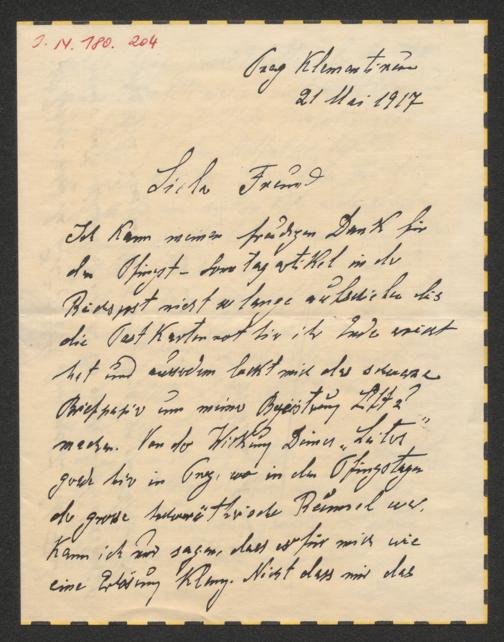 J. N. 180. 204
Prag Klementinum
21 Mai 1917
Lieber Freund
Ich kann meinen freudigen Dank für
den Pfingst-Sonntagartikel in der
Reichspost nicht so lange aufschieben bis
die Postkartennot hier ihr Ende erreicht
hat und ausserdem lockt mich das schwarze
Briefpapier um meiner Begeisterung Luft zu
machen. Von der Wirkung Deines „Leiters"
gerade hier in Prag, wo in den Pfingsttagen
der grosse hochverrätherische Rummel war,
kann ich nur sagen, dass es für mich wie
eine Erlösung klang. Nicht dass mir das